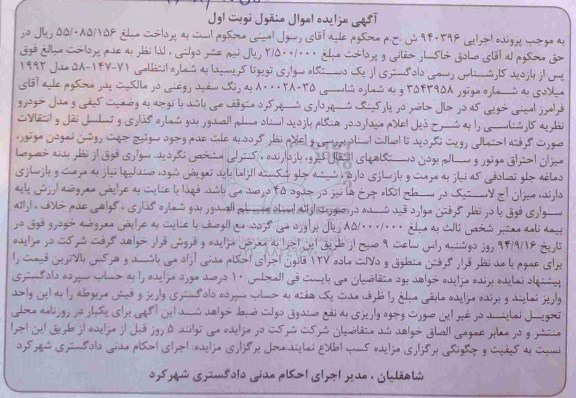 آگهی مزایده اموال منقول نوبت اول
به موجب پرونده اجرایی ۹۴۰۳۹۶ ش.ح.م محکوم علیه آقای رسول امینی محکوم است به پرداخت مبلغ ۵۵/۰۸۵/۱۵۶ ریال در
حق محکوم له آقای صادق خاکسار حقانی و پرداخت مبلغ ۲/۵۰۰/۰۰۰ ریال نیم عشر دولتی ، لذا نظر به عدم پرداخت مبالغ فوق
پس از بازدید کارشناس رسمی دادگستری از یک دستگاه سواری تویوتا کریسیدا به شماره انتظامی ۷۱-۱۴۷-۵۸ مدل ۱۹۹۲
میلادی به شماره موتور ۳۵۴۳۹۵۸ و به شماره شاسی ۸۰۰۰۲۸۰۳۵ به رنگ سفید روغنی در مالکیت پدر محکوم علیه آقای
فرامرز امینی خویی که در حال حاضر در پارکینگ شهرداری شهرکرد متوقف می باشد با توجه به وضعیت کیفی و مدل خودرو
نظریه کارشناسی را به شرح ذیل اعلام میدارد.در هنگام بازدید اسناد مسلم الصدور بدو شماره گذاری و تسلسل نقل و انتقالات
صورت گرفته احتمالی رویت نگردید تا اصالت اسناد بررسی و اعلام نظر گردد.به علت عدم وجود سوئیچ جهت روشن نمودن موتور،
میزان احتراق موتور و سالم بودن دستگاههای انتقال نیرو، بازدارنده ، کنترلی مشخص نگردید. سواری فوق از نظر بدنه خصوصا
دماغه جلو تصادفی که نیاز به مرمت و بازسازی دارد، شیشه جلو شکسته الزاما باید تعویض شود، صندلیها نیاز به مرمت و بازسازی
دارند، میزان آج لاستیک در سطح اتکاء چرخ ها نیز در حدود ۴۵ درصد می باشد. فهذا با عنایت به عرایض معروضه ارزش پایه
سواری فوق با در نظر گرفتن موارد قید شده در صورت ارائه اسناد مسلم الصدور بدو شماره گذاری ، گواهی عدم خلاف ، ارائه
بیمه نامه معتبر شخص ثالث به مبلغ ۸۵/۰۰۰/۰۰۰ ریال برآورد می گردد. مع الوصف با عنایت به عرایض معروضه خودرو فوق در
تاریخ ۹۴/۹/۱۶ روز دوشنبه راس ساعت ۹ صبح از طریق این اجرا به معرض مزایده و فروش قرار خواهد گرفت شرکت در مزایده
برای عموم با مد نظر قرار گرفتن منطوق و دلالت ماده ۱۲۷ قانون اجرای احکام مدنی آزاد می باشد و هرکس بالاترین قیمت را
پیشنهاد نماید برنده مزایده خواهد بود متقاضیان می بایست فی المجلس ۱۰ درصد مورد مزایده را به حساب سپرده دادگستری
واریز نمایند و برنده مزایده مابقی مبلغ را ظرف مدت یک هفته به حساب سپرده دادگستری واریز و فیش مربوطه را به این واحد
تحویل نمایند در غیر این صورت وجوه واریزی به نفع صندوق دولت ضبط خواهد شد این آگهی برای یکبار در روزنامه محلی
منتشر و در معابر عمومی الصاق خواهد شد متقاضیان شرکت شرکت در مزایده می توانند ۵ روز قبل از مزایده از طریق این اجرا
نسبت به کیفیت و چگونگی برگزاری مزایده کسب اطلاع نمایند.محل برگزاری مزایده: اجرای احکام مدنی دادگستری شهرکرد
شاهقلیان . مدیر اجرای احکام مدنی دادگستری شهرکرد